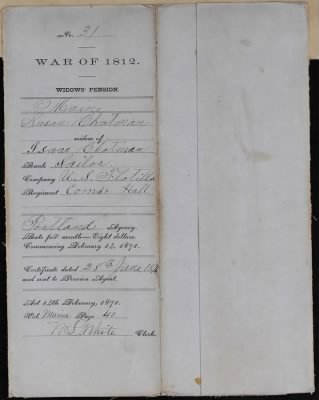 No. 31
WAR OF 1812.
WIDOWS' PENSION.
Maine
Susan Chatman
widow of
Isaac Chatman
Rank Sailor
Company U.S. Flotilla
Regiment Comdr Hall
Portland Agency.
Rate per month—Eight dollars.
Commencing February 14, 1871.
Certificate dated 28th June
and sent to Pension Agent.
Act 14th February, 1871.
Vol. Maine Page 40
W.S. White Clerk.